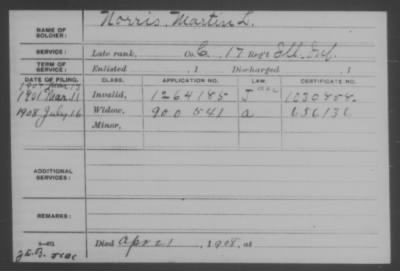 NAME OF SOLDIER: Norris, Martin L.
SERVICE: Late rank, Co. C, 17 Reg't Ill. Inf.
TERM OF SERVICE: Enlisted , 1 Discharged , 1
DATE OF FILING. CLASS. APPLICATION NO. LAW. CERTIFICATE NO.
1901 Mar. 11 Invalid, 1264185 J
1908 July 16 Widow, 900541 a 656136
Minor,
ADDITIONAL SERVICES:
REMARKS:
Died Apr 21, 1908, at